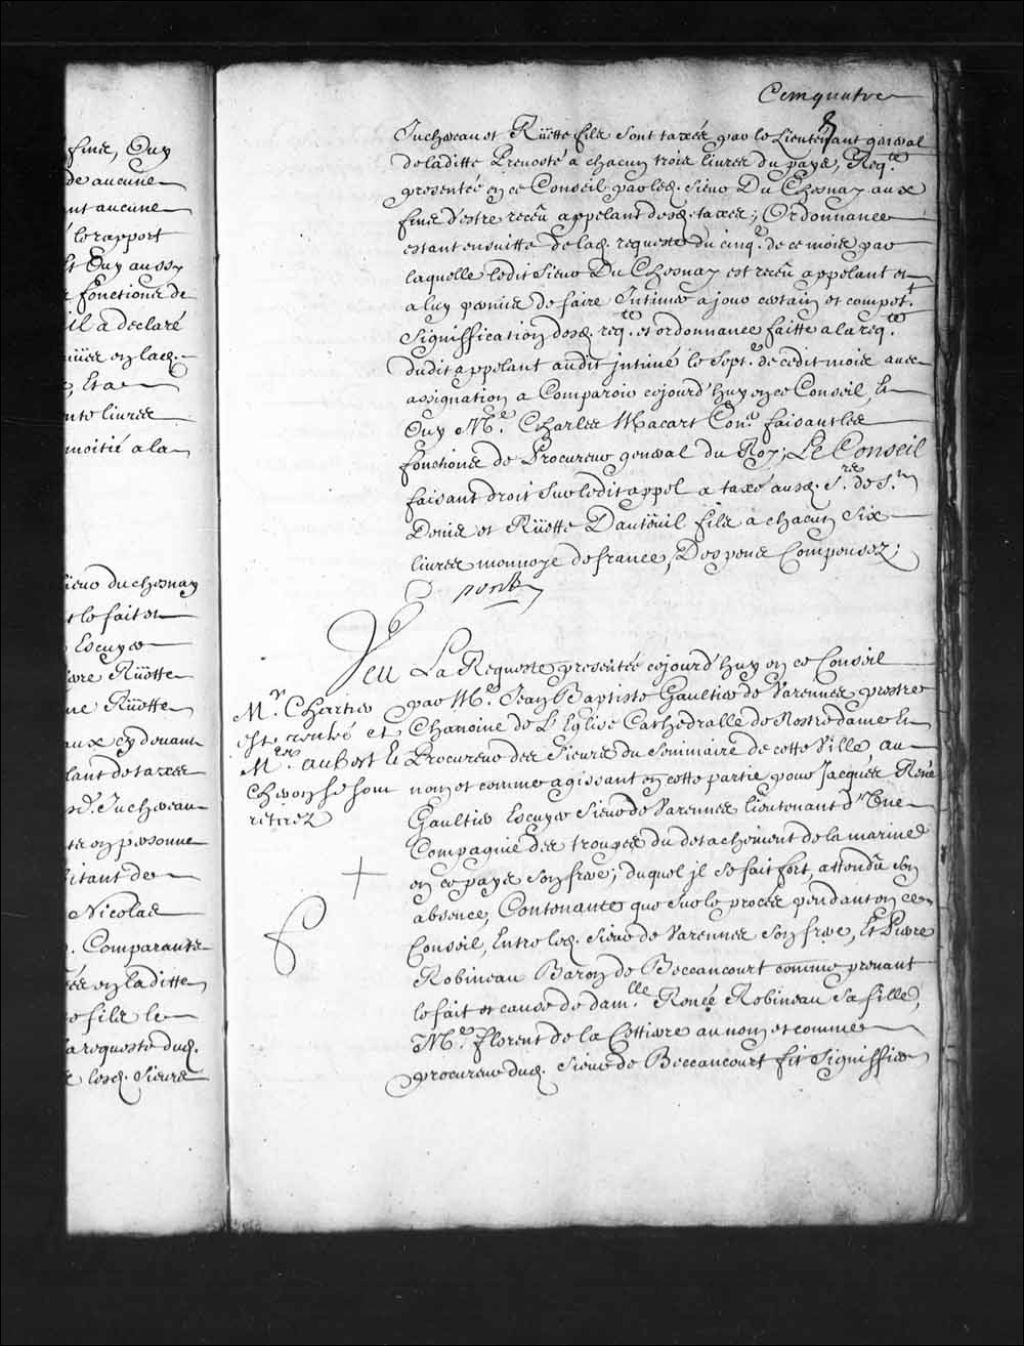 fins, Ouy
de aucune
nt aucune
le rapport
Et Ouy aussy
fonctions de
il a declaré
en lad.
Et a
nte livres
moitié a la
sieur du chesnay
t le fait et
Escuyer
Rüette
ue Rüette
aux cy devant
lant de taxes
Juchereau
en personne
itant de
Nicolas
Comparants
en laditte
fils le
la requeste dud.
lesd. Sieurs
Cent quatre
8
Juchereau et Rüette fils sont taxés par le Lieutenant general
de laditte Prevosté a chacun trois livres du pays, Reqte
presentée en ce Conseil par led. Sieur Du Chesnay aux
fins d'estre receu appelant desd. taxes; Ordonnance
estant ensuitte de lad. requeste du cinqe de ce mois par
laquelle ledit Sieur Du Chesnay est receu appelant et
a luy permis de faire Intimer a jour certain et compett
Signiffication desd. reqte et ordonnance faitte a la reqte
dudit appelant audit intimé le Sept.e de cedit mois avec
assignation a Comparoir cejourd'huy en ce Conseil, Et
Ouy Me Charles Macart Conr faisant les
fonctions de Procureur general du Roy; Le Conseil
faisant droit sur ledit appel a taxé ausd. Srs de St
Denis et Rüette Dauteüil fils a chacun Six
livres monnoye de france, Despens Compensez;
Veu La Requeste presentée cejourd'huy en ce Conseil
par Me Jean Baptiste Gaultier de Varennes prestre
Chanoine de L'Eglise Cathedralle de Nostre dame Et
Procureur des Sieurs du Seminaire de cette Ville au
nom et comme agissant en cette partie pour Jacques René
Gaultier Escuyer Sieur de Varennes Lieutenant d'Une
Compagnie des trouppes du detachement de la marine
en ce pays son frere; duquel il se fait fort, attendu son
absence, Contenante que sur le procés pendant en ce
Conseil, Entre led. Sieur de Varennes son frere, Et Pierre
Robineau Baron de Beccancourt comme prenant
le fait et cause de damlle Renée Robineau sa fille,
Me florent de la Cettiere au nom et comme
procureur dud. Sieur de Beccancourt fit Signiffier
Mr Chartier
est rentré et
Mes aubert et
se sont
retirez